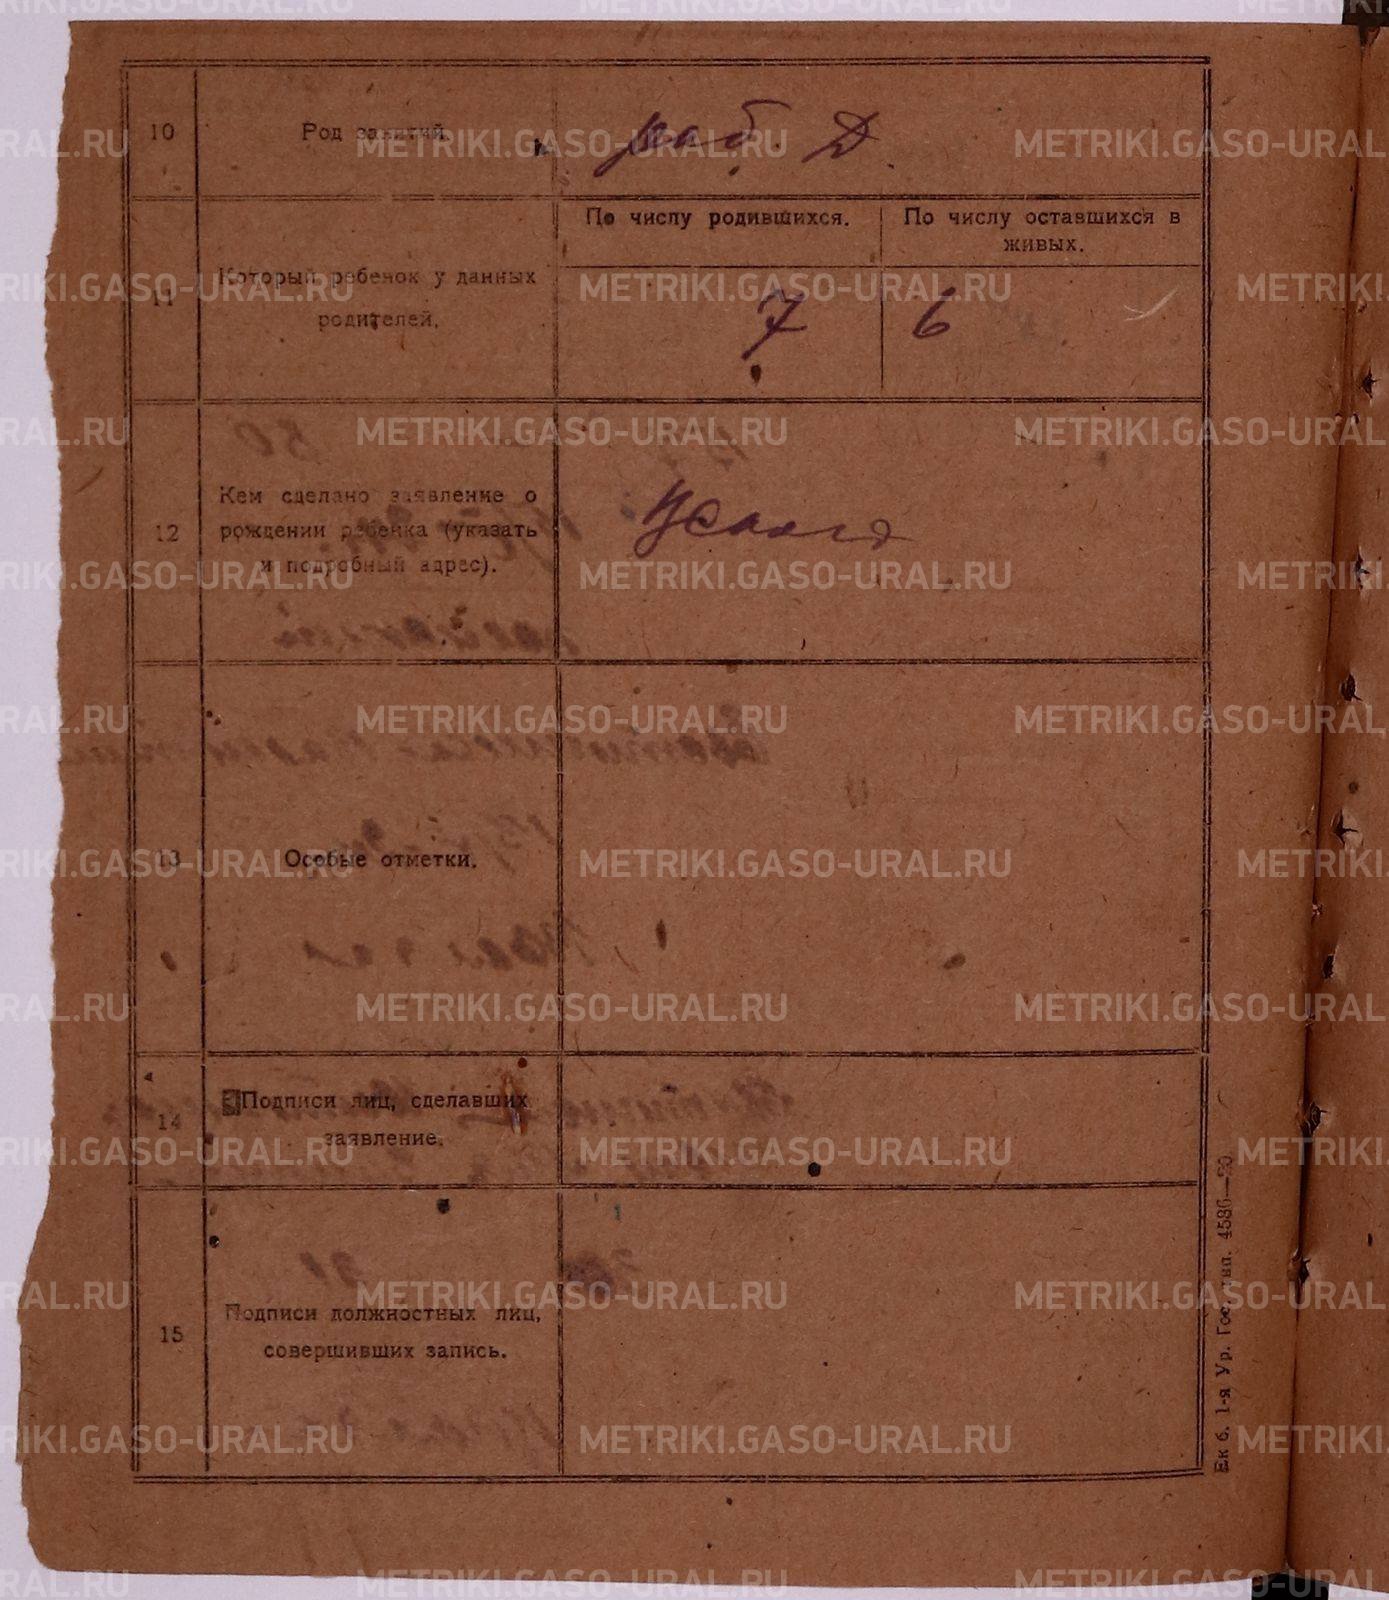 10
Род занятий.
раб. Д.
11
Который ребенок у данных
родителей.
По числу родившихся.
По числу оставшихся в
живых.
7
6
12
Кем сделано заявление о
рождении ребенка (указать
и подробный адрес).
13
Особые отметки.
14
Подписи лиц, сделавших
заявление.
15
Подписи должностных лиц,
совершивших запись.
Ек б. 1-я Ур. Гос. тип. 4586—20.
METRIKI.GASO-URAL.RU